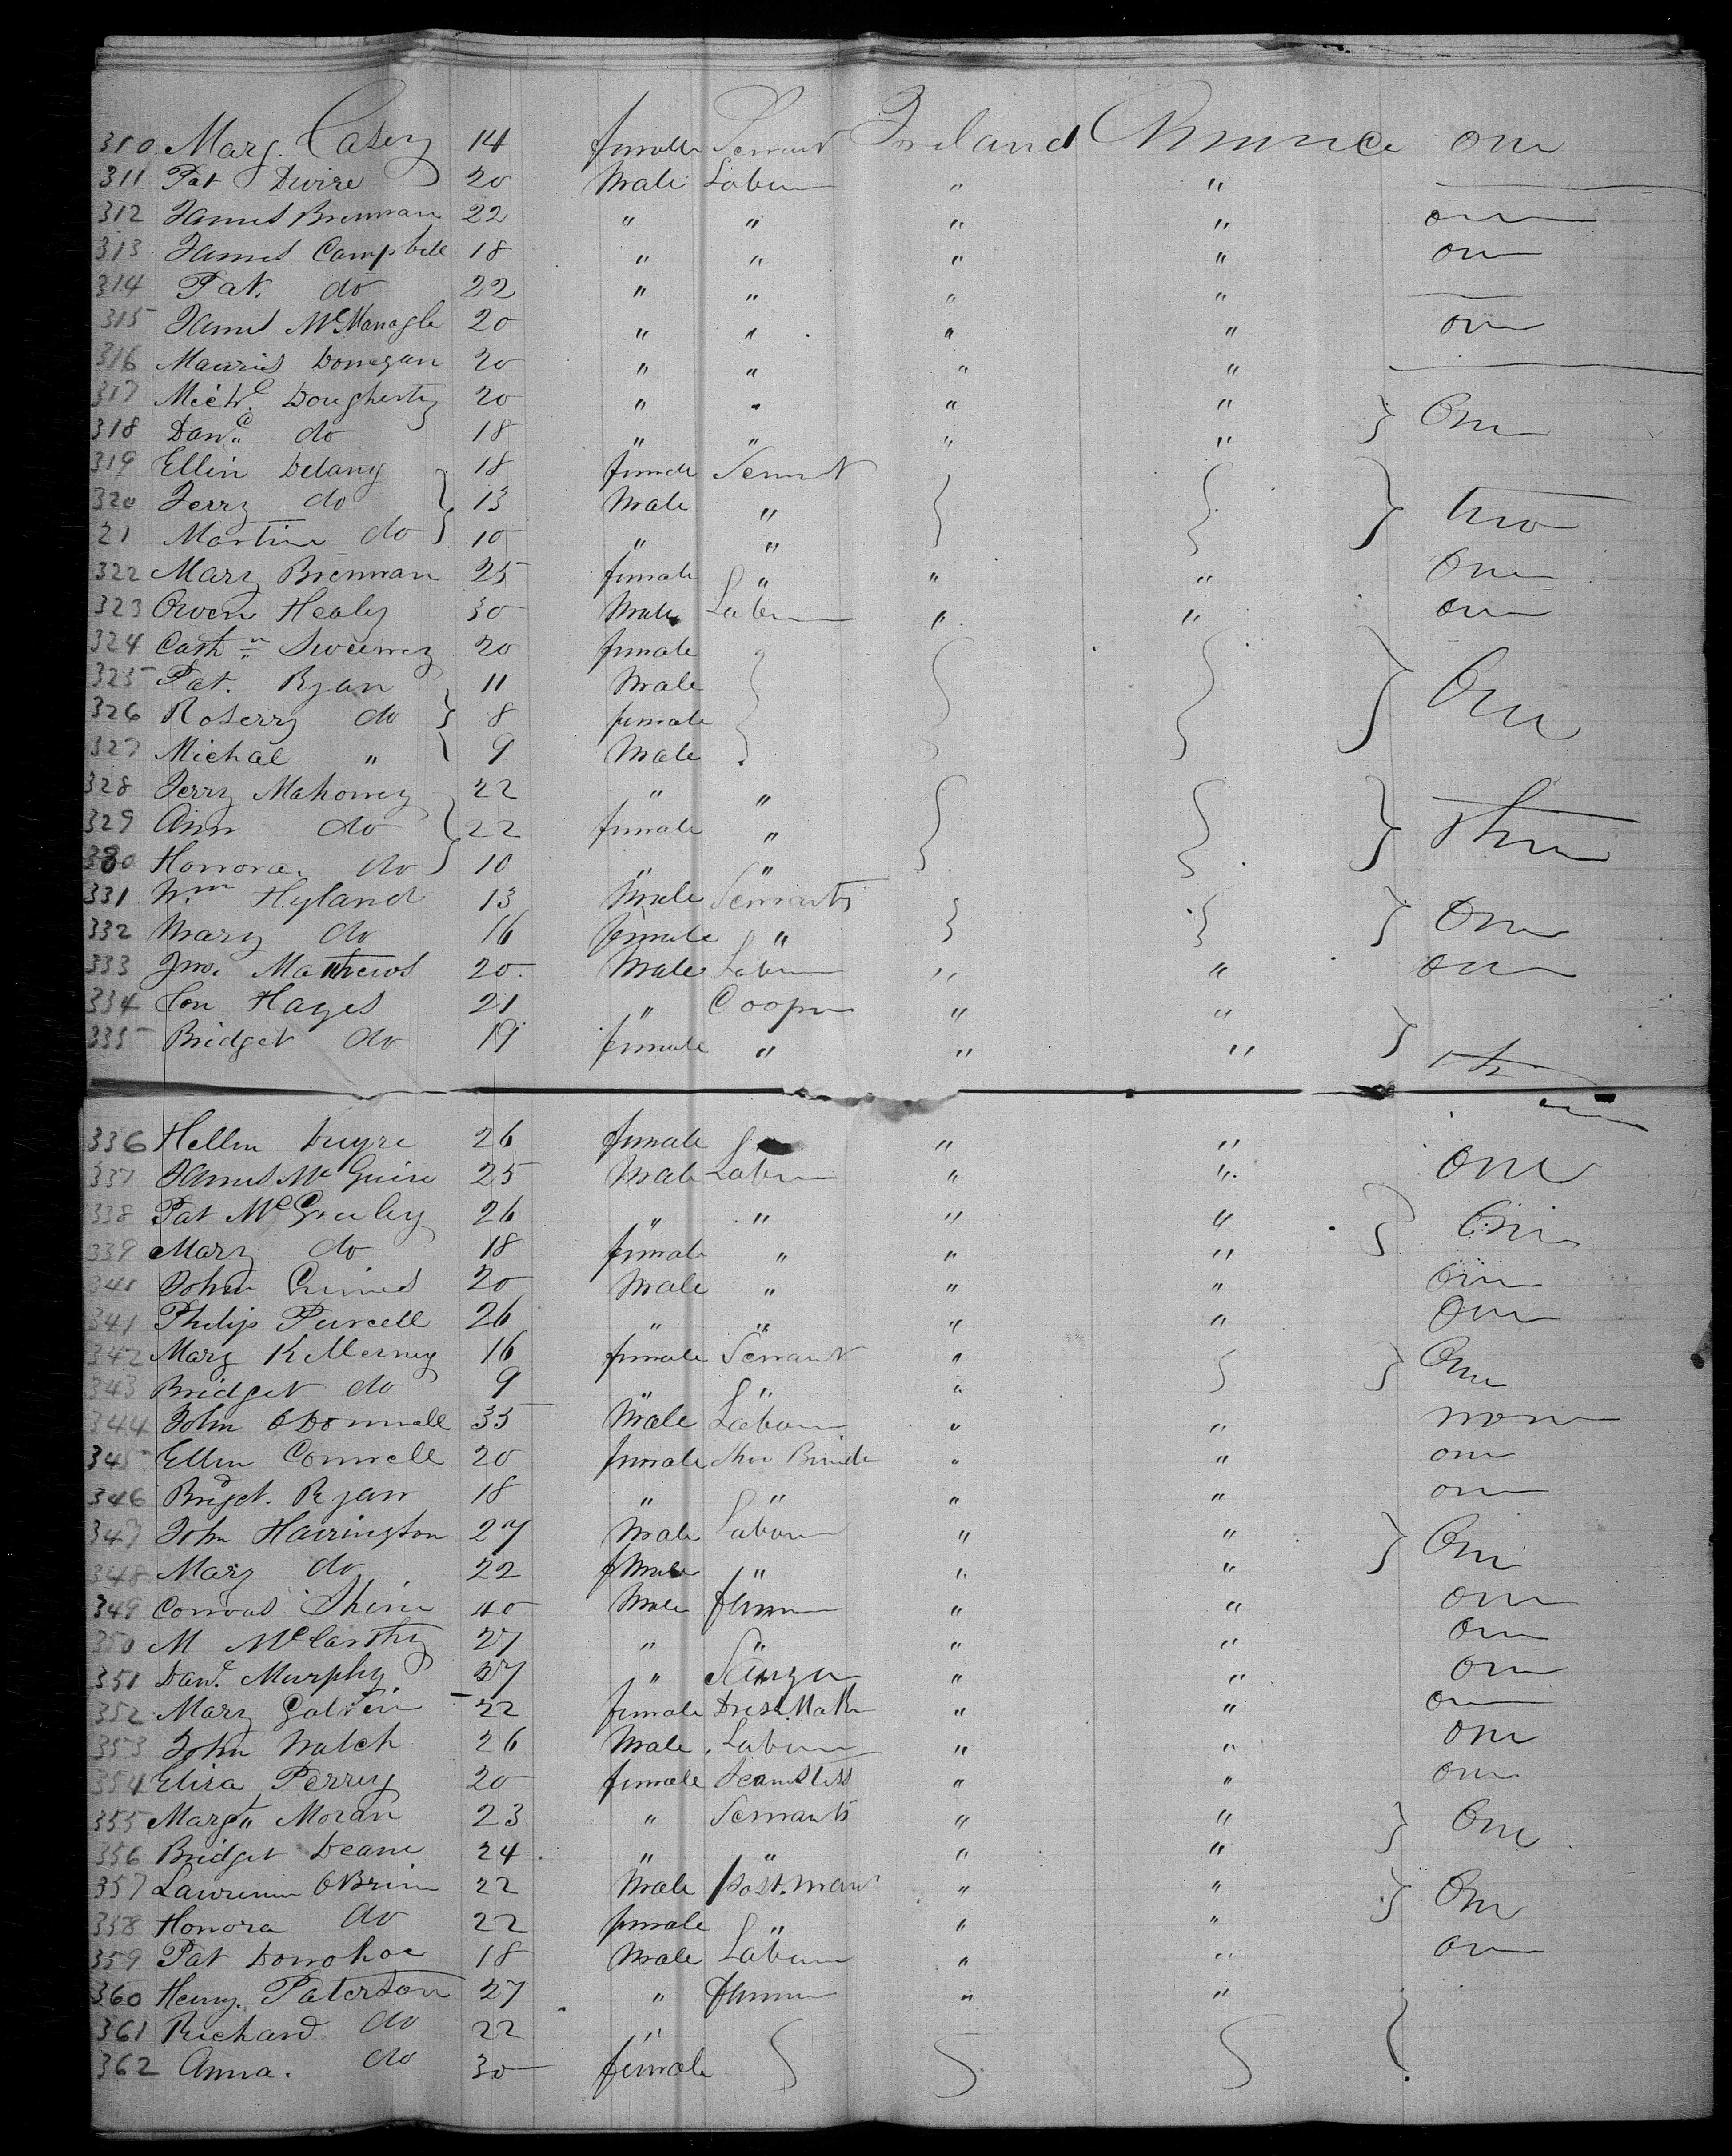 310 Mary Casey 14 female Servant Ireland America one
311 Pat Dwire 20 Male Labour " "
312 James Brennan 22 " " " " one
313 James Campbell 18 " " " " one
314 Pat. do 22 " " " "
315 James McManagle 20 " " " " one
316 Maurius Donegan 20 " " " "
317 Michl. Dougherty 20 " " " " } One
318 Danl. do 18 " " " "
319 Ellin Delany 18 female Servant
320 Jerry do } 13 Male " } } } two
21 Martin do 10 " "
322 Mary Brennan 25 female " " " One
323 Owen Healy 30 Male Labour " " one
324 Cathn Sweeney 20 female
325 Pat. Ryan 11 Male
326 Roserry do } 8 female } } } } One
327 Michal " 9 Male
328 Jerry Mahoney 22 " "
329 Ann do } 22 female " } } } Three
330 Honora. do 10 " "
331 Wm Hyland 13 Male Servants
332 Mary do 16 female " } } } One
333 Jno. Matthews 20. Male Labour " " one
334 Con Hayes 21 " Cooper " "
335 Bridget do 19 female " " " }
336 Hellen Duyre 26 female " "
337 James McGuire 25 Male Labour " " one
338 Pat McGreeley 26 " " " " } One
339 Mary do 18 female " " "
340 John Grimes 20 Male " " " one
341 Philip Purcell 26 " " " " One
342 Mary Killerney 16 female Servant " } } One
343 Bridget do 9 " " "
344 John ODonnell 35 Male Labour " " none
345 Ellen Connell 20 female Shoe Binder " " one
346 Bridget. Ryan 18 " " " " one
347 John Harrington 27 Male Labour " " } One
348 Mary do 22 female " " "
349 Convas Shine 40 Male farmer " " one
350 M McCarthy 27 " " " " one
351 Danl. Murphy 27 " " " one
352 Mary Galvin 22 female Dress Maker " " one
353 John Walch 26 Male Labour " " one
354 Eliza Perry 20 female Seamstess " " one
355 Margt Moran 23 " Servants " " } One
356 Bridget Deane 24 " " " "
357 Lawrence OBrien 22 Male post.man " " } One
358 Honora do 22 female " " "
359 Pat Donohoe 18 Male Labour " " one
360 Henry. Paterson 27 " farmer " "
361 Richard do 22 "
362 Anna. do 30 female